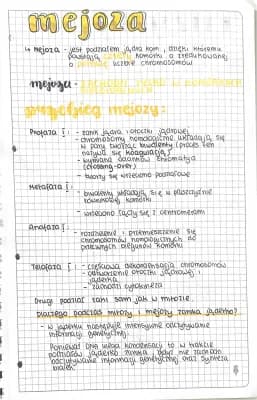 mejoza
↳ mejoza - jest podziałem jądra kom., dzięki któremu
powstają cztery komórki o zredukowanej
o połowę liczbie chromosomów
mejoza -
przebieg mejozy:
Profaza I: - zanik jądra i otoczki jądrowej
- chromosomy homologiczne układają się
w pary tworząc biwalenty (proces ten
nazywa się koniugacją)
- wymiana odcinków chromatyd
(crossing-over)
- tworzy się wrzeciono podziałowe
Metafaza I: - biwalenty układają się w płaszczyźnie
równikowej komórki
- wrzeciono łączy się z centromerami
Anafaza I: - rozdzielenie i przemieszczenie się
chromosomów homologicznych do
przeciwnych biegunów komórki
Telofaza I: - częściowa dekondensacja chromosomów
- odtworzenie otoczki jądrowej i
jąderka
- zachodzi cytokineza
Drugi podział taki sam jak w mitozie.
Dlaczego podczas mitozy i mejozy zanika jąderko?
- w jąderku następuje intensywne odczytywanie
informacji genetycznej.
Ponieważ DNA ulega kondensacji to w trakcie
podziałów jąderko zanika, gdyż nie zachodzi
odczytywanie informacji genetycznej oraz synteza
białek.